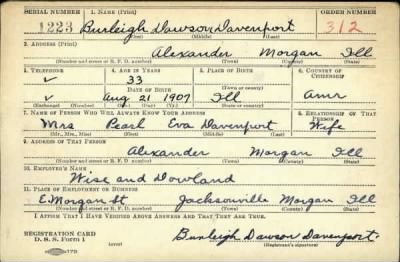 SERIAL NUMBER 1. NAME (Print) ORDER NUMBER
1223 Burleigh Dawson Davenport 312
(First) (Middle) (Last)
2. ADDRESS (Print)
Alexander Morgan Ill
(Number and street or R. F. D. number) (Town) (County) (State)
3. TELEPHONE 4. AGE IN YEARS 5. PLACE OF BIRTH 6. COUNTRY OF CITIZENSHIP
✓ 33
DATE OF BIRTH (Town or county)
✓ Aug 21 1907 Ill Amr
(Exchange) (Number) (Mo.) (Day) (Yr.) (State or country)
7. NAME OF PERSON WHO WILL ALWAYS KNOW YOUR ADDRESS 8. RELATIONSHIP OF THAT PERSON
Mrs Pearl Eva Davenport Wife
(Mr., Mrs., Miss) (First) (Middle) (Last)
9. ADDRESS OF THAT PERSON
Alexander Morgan Ill
(Number and street or R. F. D. number) (Town) (County) (State)
10. EMPLOYER'S NAME
Wise and Dowland
11. PLACE OF EMPLOYMENT OR BUSINESS
E. Morgan St Jacksonville Morgan Ill
(Number and street or R. F. D. number) (Town) (County) (State)
I AFFIRM THAT I HAVE VERIFIED ABOVE ANSWERS AND THAT THEY ARE TRUE.
REGISTRATION CARD
D. S. S. Form 1 (over) Burleigh Dawson Davenport
(Registrant's signature)